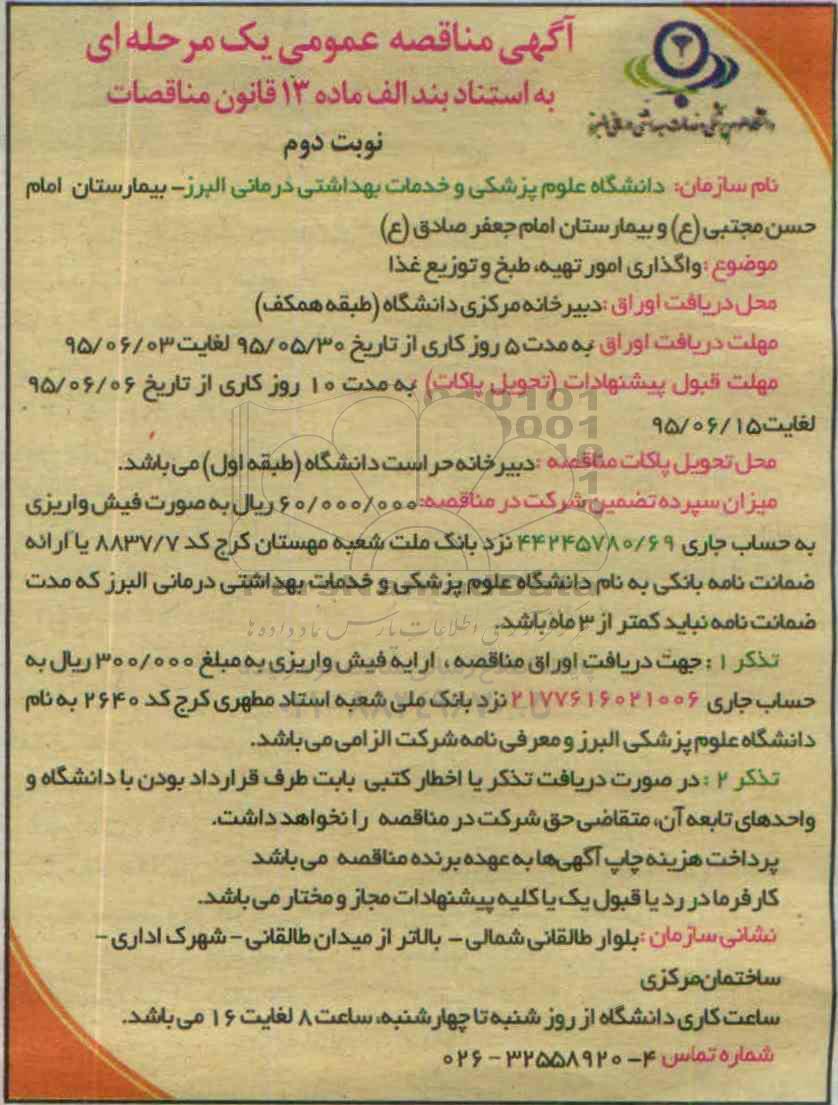 آگهی مناقصه عمومی یک مرحله ای
به استناد بند الف ماده ۱۳ قانون مناقصات
نوبت دوم
نام سازمان: دانشگاه علوم پزشکی و خدمات بهداشتی درمانی البرز- بیمارستان امام
حسن مجتبی (ع) و بیمارستان امام جعفر صادق (ع)
موضوع :واگذاری امور تهیه، طبخ و توزیع غذا
محل دریافت اوراق :دبیرخانه مرکزی دانشگاه (طبقه همکف)
مهلت دریافت اوراق :به مدت ۵ روز کاری از تاریخ ۹۵/۰۵/۳۰ لغایت ۹۵/۰۶/۰۳
مهلت قبول پیشنهادات (تحویل پاکات) :به مدت ۱۰ روز کاری از تاریخ ۹۵/۰۶/۰۶
لغایت ۹۵/۰۶/۱۵
محل تحویل پاکات مناقصه :دبیرخانه حراست دانشگاه (طبقه اول) می باشد.
میزان سپرده تضمین شرکت در مناقصه: ۶۰/۰۰۰/۰۰۰ ریال به صورت فیش واریزی
به حساب جاری ۴۴۲۴۵۷۸۰/۶۹ نزد بانک ملت شعبه مهستان کرج کد ۸۸۳۷/۷ یا ارائه
ضمانت نامه بانکی به نام دانشگاه علوم پزشکی و خدمات بهداشتی درمانی البرز که مدت
ضمانت نامه نباید کمتر از ۳ ماه باشد.
تذکر ۱ : جهت دریافت اوراق مناقصه ، ارایه فیش واریزی به مبلغ ۳۰۰/۰۰۰ ریال به
حساب جاری ۲۱۷۷۶۱۶۰۲۱۰۰۶ نزد بانک ملی شعبه استاد مطهری کرج کد ۲۶۴۰ به نام
دانشگاه علوم پزشکی البرز و معرفی نامه شرکت الزامی می باشد.
تذکر ۲ : در صورت دریافت تذکر یا اخطار کتبی بابت طرف قرارداد بودن با دانشگاه و
واحدهای تابعه آن، متقاضی حق شرکت در مناقصه را نخواهد داشت.
پرداخت هزینه چاپ آگهی‌ها به عهده برنده مناقصه می باشد
کارفرما در رد یا قبول یک یا کلیه پیشنهادات مجاز و مختار می باشد.
نشانی سازمان :بلوار طالقانی شمالی - بالاتر از میدان طالقانی - شهرک اداری -
ساختمان مرکزی
ساعت کاری دانشگاه از روز شنبه تا چهارشنبه، ساعت ۸ لغایت ۱۶ می باشد.
شماره تماس ۴- ۳۲۵۵۸۹۲۰ - ۰۲۶